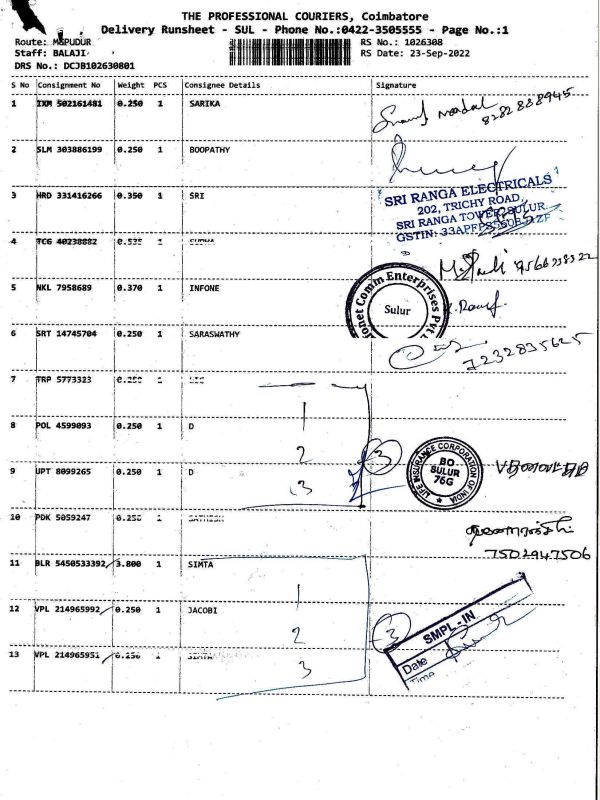 THE PROFESSIONAL COURIERS, Coimbatore
Delivery Runsheet - SUL - Phone No.:0422-3505555 - Page No.:1
Route: MGPUDUR
Staff: BALAJI
DRS No.: DCJB102630801
RS No.: 1026308
RS Date: 23-Sep-2022
S No Consignment No Weight PCS Consignee Details Signature
1 IXM 502161481 0.250 1 SARIKA
8282888945
2 SLM 303886199 0.250 1 BOOPATHY
3 HRD 331416266 0.350 1 SRI
SRI RANGA ELECTRICALS
202, TRICHY ROAD,
SRI RANGA TOWER, SULUR
GSTIN:
4 TCG 40238882 0.535 1 SUDHA
9566238322
5 NKL 7958689 0.370 1 INFONE
Comm Enterprises Pvt
Sulur
6 SRT 14745704 0.250 1 SARASWATHY
7232835625
7 TRP 5773323 0.250 1 LIC
1
8 POL 4599093 0.250 1 D
2
3
LIFE INSURANCE CORPORATION OF INDIA
BO
SULUR
76G
9 UPT 8099265 0.250 1 D
3
10 PDK 5059247 0.250 1 SATHISH
7502947506
11 BLR 5450533392 3.800 1 SIMTA
1
12 VPL 214965992 0.250 1 JACOBI
2
3
SMPL-IN
Date
Time
13 VPL 214965951 0.250 1 SIMTA
3